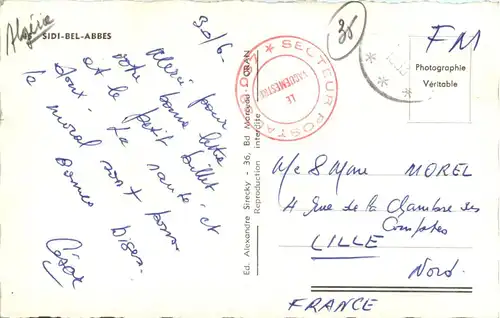 Algérie
SIDI-BEL-ABBES
30/6-
Merci pour
votre bonne lettre
et le petit billet
doux. La santé et
le moral sont pour
bonnes
Bises.
César
Ed. Alexandre Sirecky - 36, Bd Marceau - ORAN
Reproduction interdite
SECTEUR POSTAL
LE
VAGUEMESTRE
35
FM
Photographie
Véritable
Mr & Mme MOREL
4 Rue de la Chambre des
Comptes
LILLE
Nord.
FRANCE